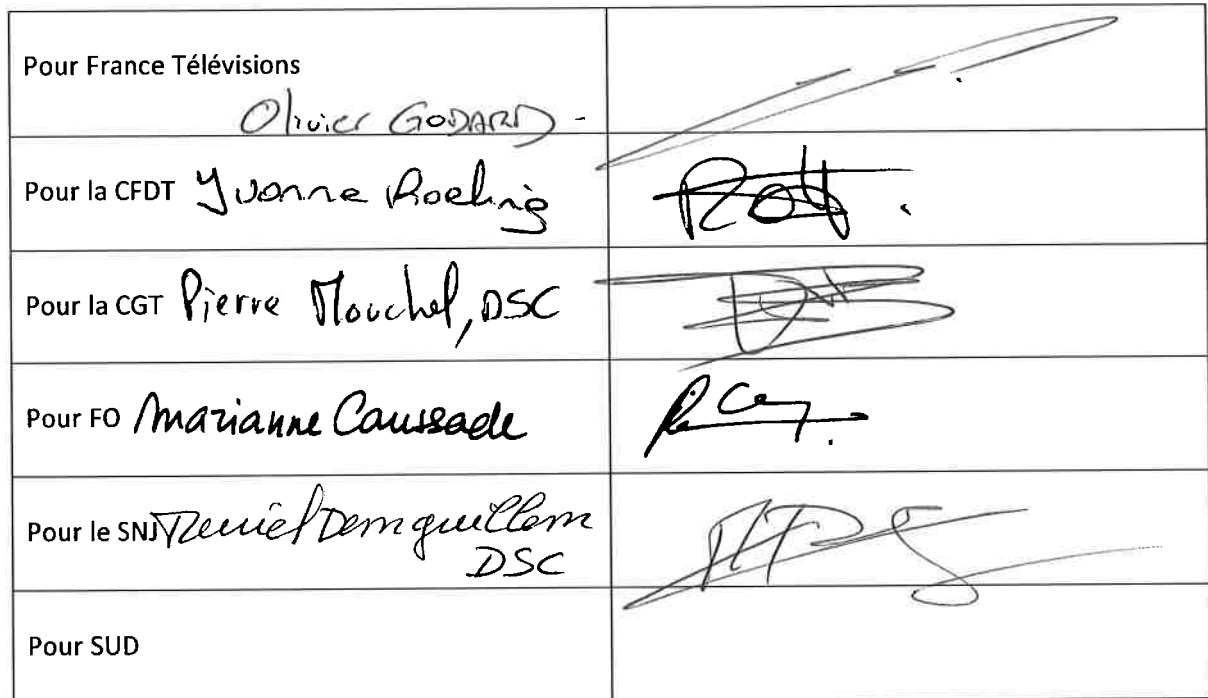 Pour France Télévisions
Olivier GODARD -
Pour la CFDT Yvonne Roehrig
Pour la CGT Pierre Mouchel, DSC
Pour FO Marianne Caussade
Pour le SNJ
DSC
Pour SUD